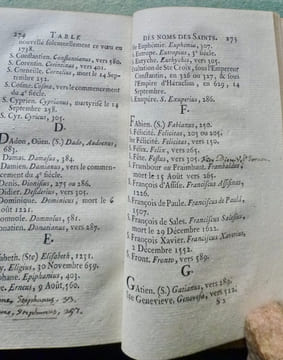 274 TABLE
nouvellé solemnellement ce vœu en
1738.
S. Constantien, Constantianus, vers 580.
S. Corentin, Corintinus, vers 401.
S. Corneille, Cornelius, mort le 14 Sep-
tembre 252.
S. Cosme, Cosma, vers le commencement
du 4e siécle.
S. Cyprien, Cyprianus, martyrisé le 14
Septembre 258.
S. Cyr, Cyricus, 305.
D.
Dadon, Oüen, (S.) Dado, Audoenus,
683.
Damas, Damasus, 384.
Damien, Damianus, vers le commen-
cement du 4e siécle.
Denis, Dionisius, 275 ou 286.
Didier, Desiderius
Dominique, Dominicus, mort le 6
Août 1221.
Domnole, Domnolus, 581.
Donatien, Donatianus, vers 287.
E.
Elisabeth, (Ste) Elisabeth, 1231.
Eligius, 30 Novembre 659.
Epiphanius, 403.
Erneus, 9 Août, 560.
Epiphanius
Stephanus, 257.
DES NOMS DES SAINTS. 275
Ste Euphémie, Euphemia, 307.
S. Europe, Europius, 3e siécle.
S. Eutyche, Eutychus, vers 305.
Exaltation de Ste Croix, sous l'Empereur
Constantin, en 326 ou 327, & sous
l'Empire d'Héraclius, en 629, 14
Septembre.
S. Exupere, S. Exuperius, 286.
F.
Fabien, (S.) Fabianus, 250.
S. Félicité, Felicitas, 203 ou 205.
Ste Félicité, Felicitas, vers 150.
S. Félix, Felix, vers 265.
S. Fête, Festus, vers 305.
S. Frambour ou Fraimbaut, Frambaldus,
mort le 15 Août vers 265.
S. François d'Assise, Franciscus Assisinas,
1226.
S. François de Paule, Franciscus de Paulâ,
1507.
S. François de Sales, Franciscus Salesius,
mort le 29 Décembre 1622.
S. François Xavier, Franciscus Xaverius,
2 Décembre 1552.
S. Front, Fronto, vers 589.
G.
Gatien, (S.) Gatianus, vers 289.
Ste Genevieve, Genovefa, vers 512.